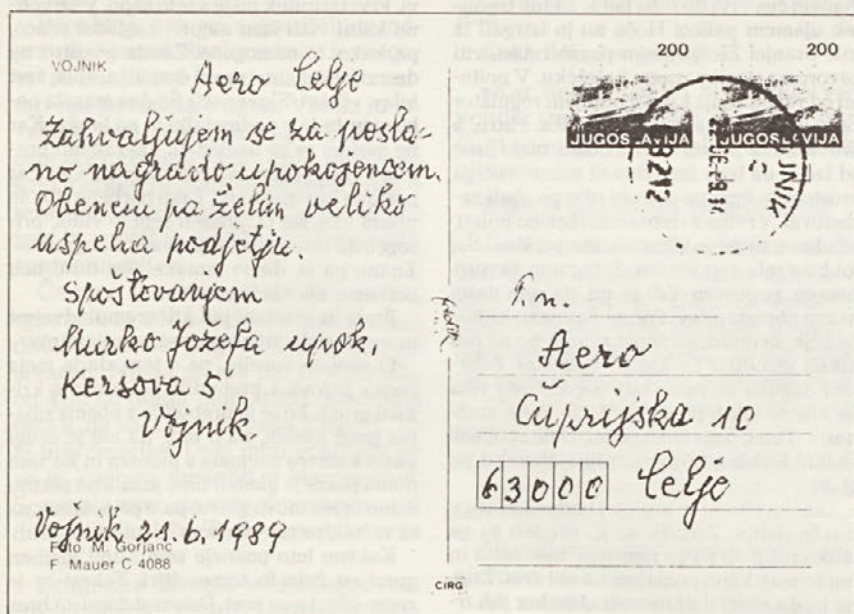 VOJNIK
Aero Celje
Zahvaljujem se za posla-
no nagrado upokojencem.
Obenem pa želim veliko
uspeha podjetju.
Spoštovanjem
Murko Jožefa upok.
Keršova 5
Vojnik.
Vojnik, 21.6.1989
Foto M. Gorjanc
F. Mauer C 4088
200
200
JUGOSLAVIJA
JUGOSLAVIJA
Aero
Čuprijska 10
63000 Celje
CIRG